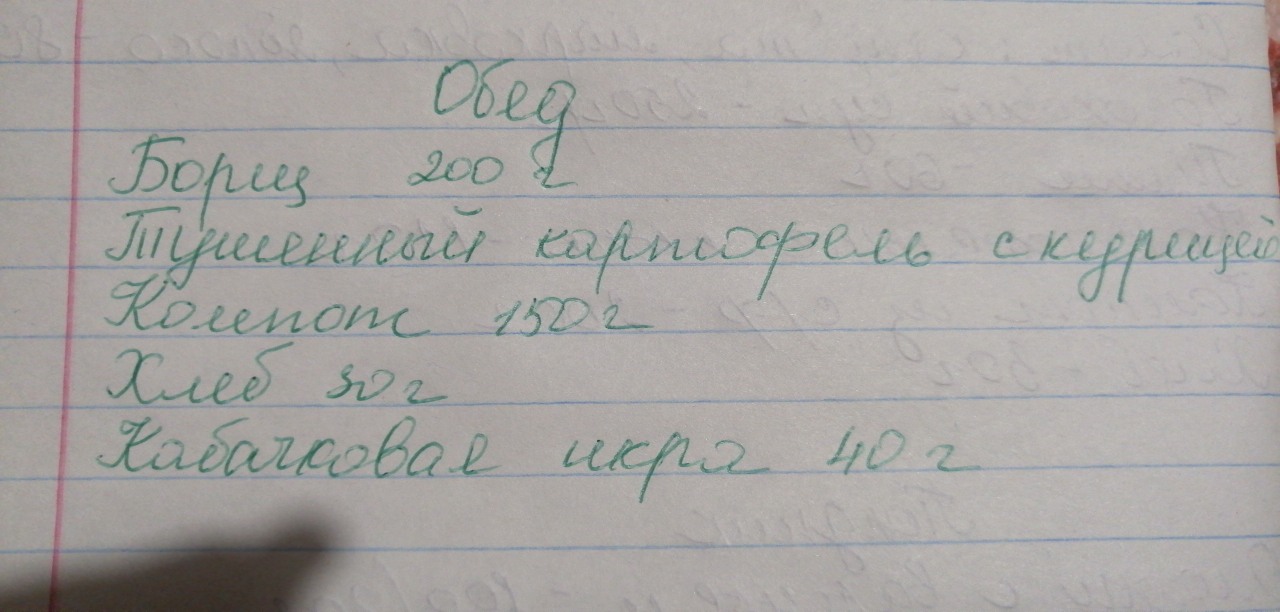 Обед
Борщ 200 г
Тушенный картофель с курицей
Компот 150 г
Хлеб 30 г
Кабачковая икра 40 г